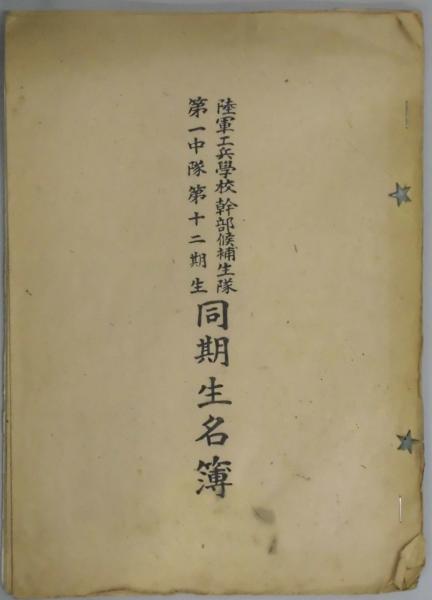 陸軍工兵學校幹部候補生隊
第一中隊第十二期生
同期生名簿